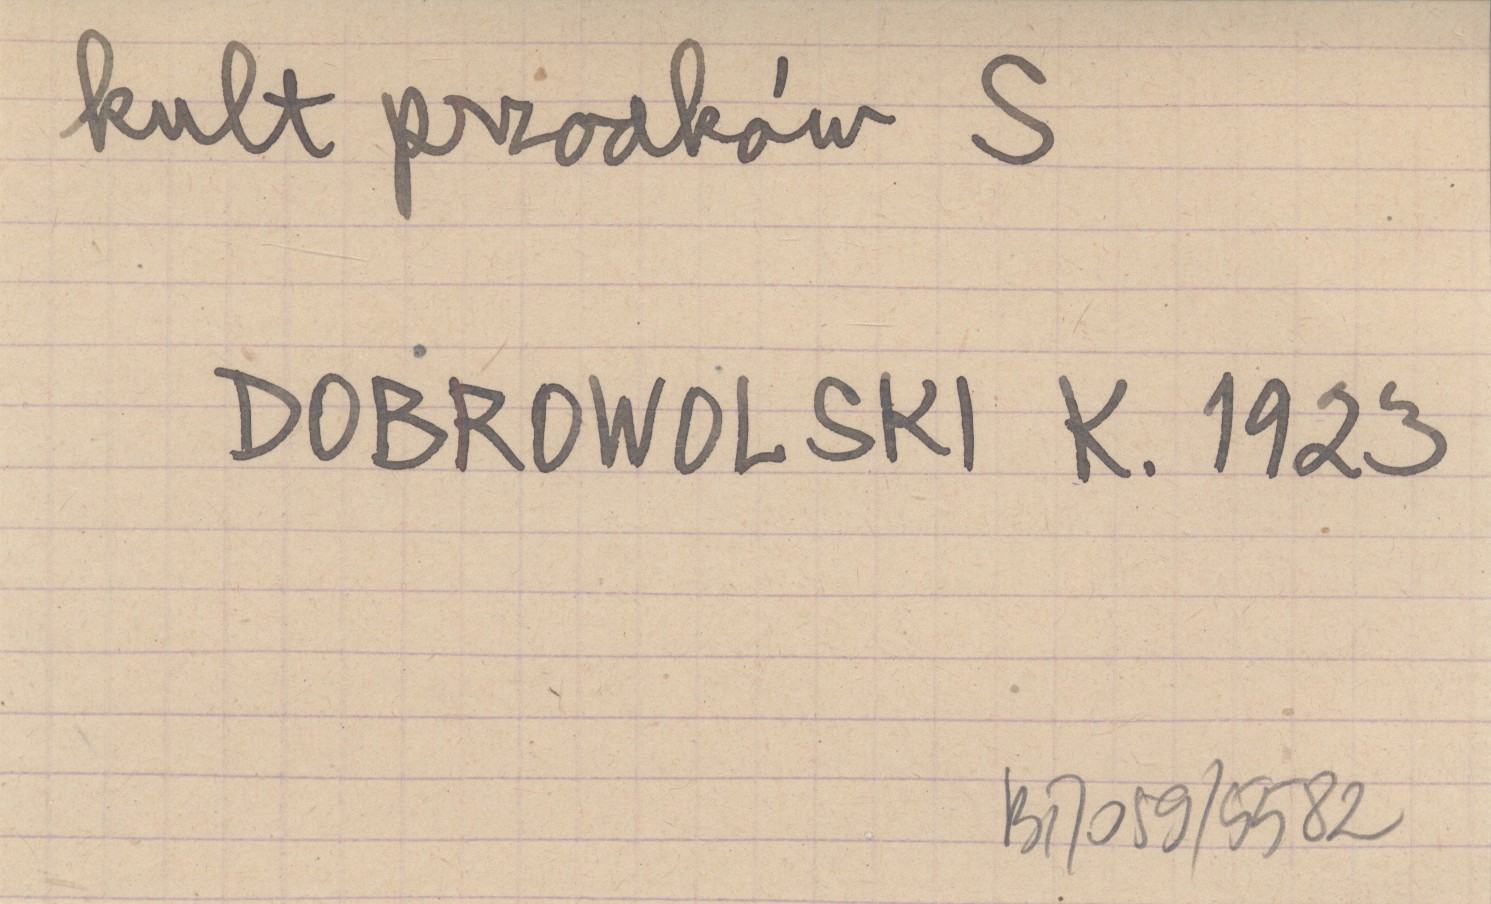 kult przodków S
DOBROWOLSKI K. 1923
B17/059/5582